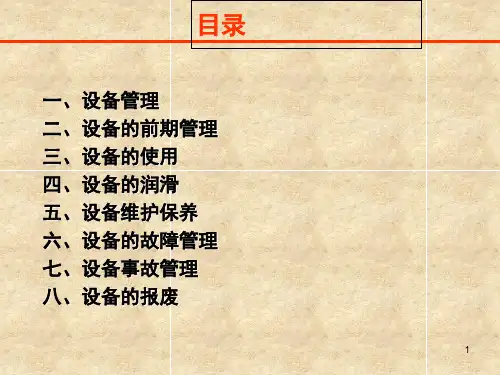 目录
一、设备管理
二、设备的前期管理
三、设备的使用
四、设备的润滑
五、设备维护保养
六、设备的故障管理
七、设备事故管理
八、设备的报废
1